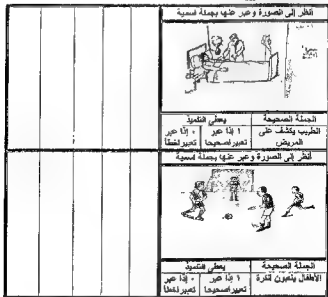 أنظر إلى الصورة وعبر عنها بجملة اسمية
الجملة الصحيحة
يعطى التلميذ
الطبيب يكشف على المريض
١ إذا عبر تعبيرا صحيحا
٠ إذا عبر تعبيرا خطأ
أنظر إلى الصورة وعبر عنها بجملة اسمية
الجملة الصحيحة
يعطى التلميذ
الأطفال يلعبون الكرة
١ إذا عبر تعبيرا صحيحا
٠ إذا عبر تعبيرا خطأ